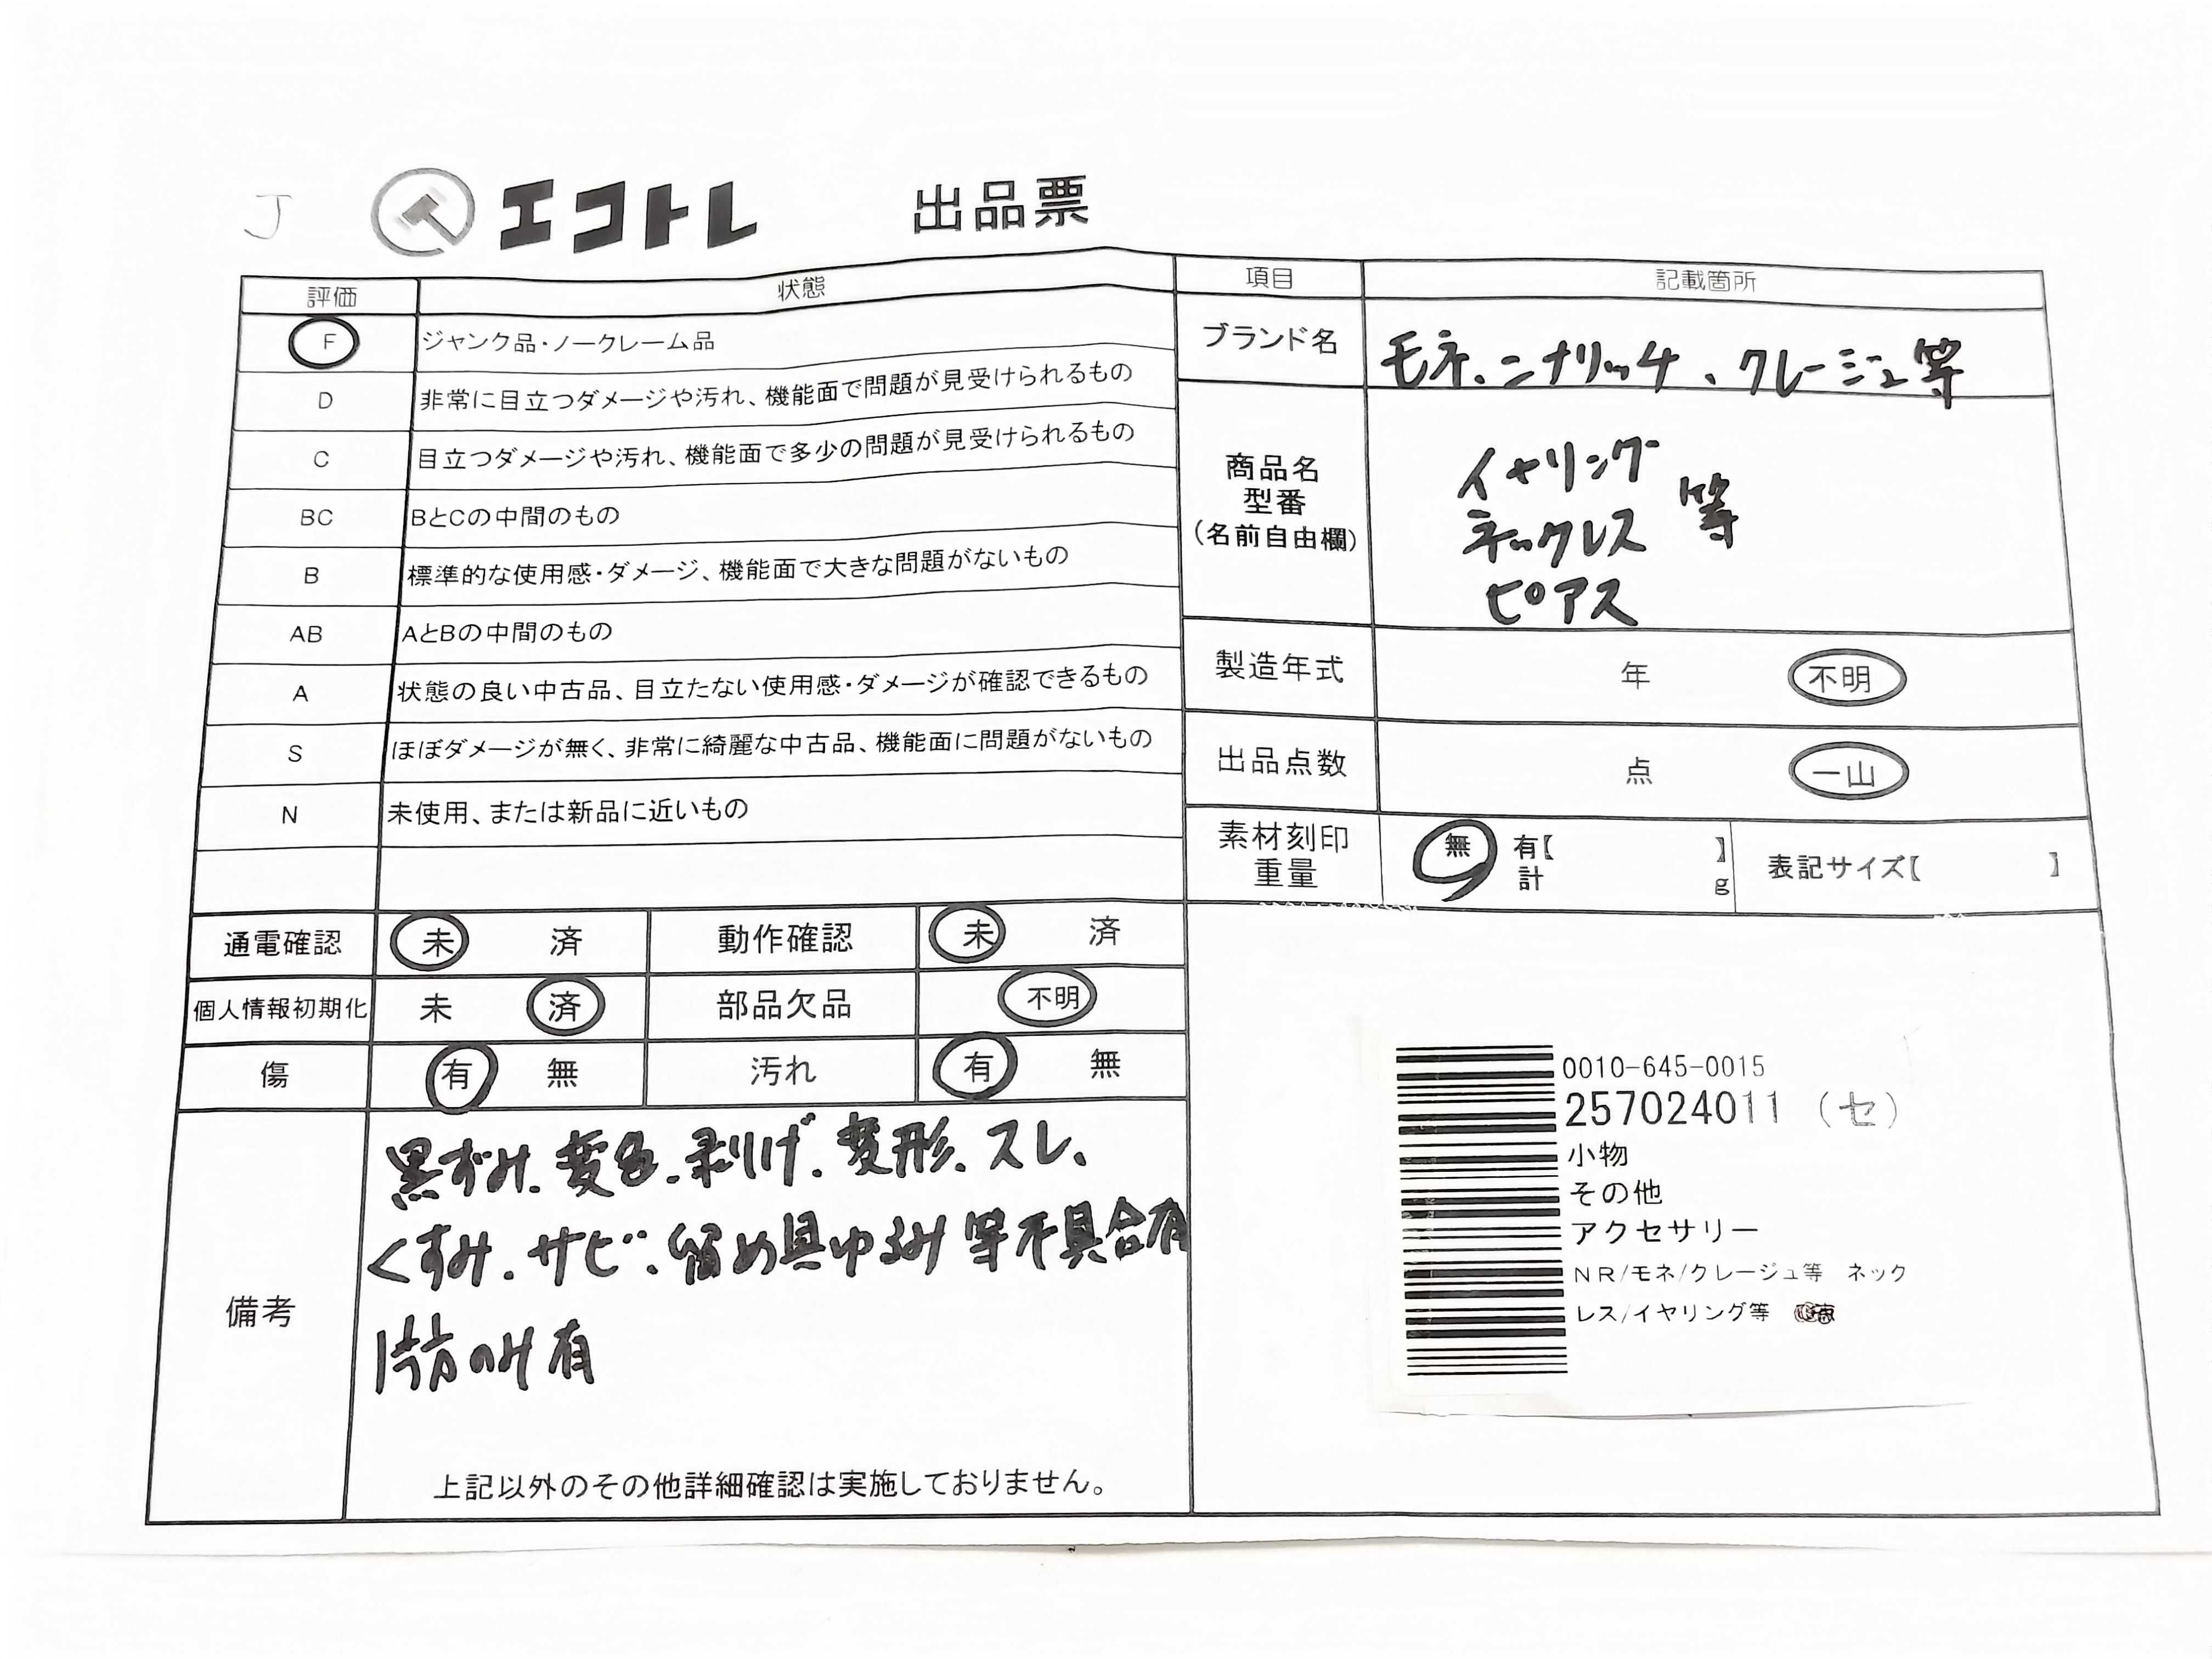 J エコトレ 出品票
評価 状態
F ジャンク品・ノークレーム品
D 非常に目立つダメージや汚れ、機能面で問題が見受けられるもの
C 目立つダメージや汚れ、機能面で多少の問題が見受けられるもの
BC BとCの中間のもの
B 標準的な使用感・ダメージ、機能面で大きな問題がないもの
AB AとBの中間のもの
A 状態の良い中古品、目立たない使用感・ダメージが確認できるもの
S ほぼダメージが無く、非常に綺麗な中古品、機能面に問題がないもの
N 未使用、または新品に近いもの
通電確認 未 済 動作確認 未 済
個人情報初期化 未 済 部品欠品 不明
傷 有 無 汚れ 有 無
備考
黒ずみ、変色、剥げ、変形、スレ、
くすみ、サビ、留め具ゆるみ等不具合有
片方のみ有
上記以外のその他詳細確認は実施しておりません。
項目 記載箇所
ブランド名 モネ、ニナリッチ、クレージュ等
商品名
型番
(名前自由欄)
イヤリング
ネックレス 等
ピアス
製造年式 年 不明
出品点数 点 一山
素材刻印 無 有【 】
重量 計 g 表記サイズ【 】
0010-645-0015
257024011 (セ)
小物
その他
アクセサリー
NR/モネ/クレージュ等 ネック
レス/イヤリング等